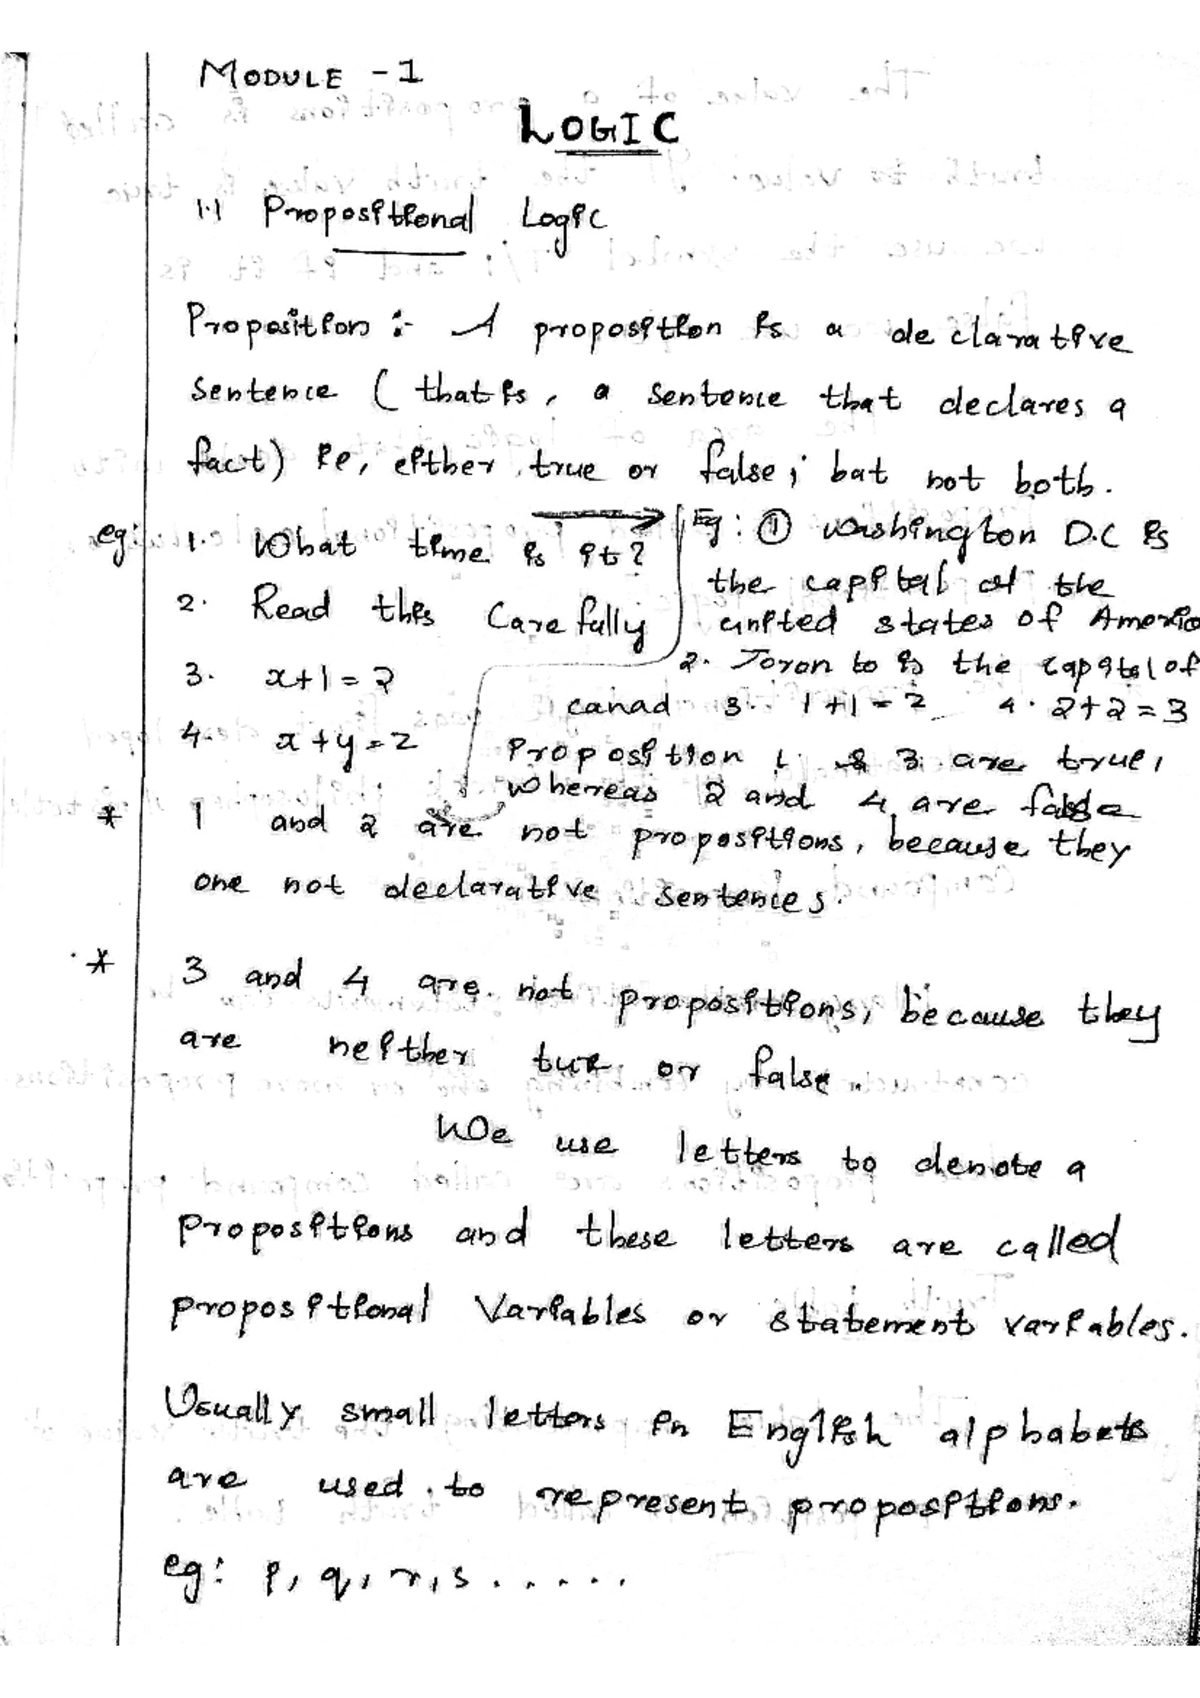 MODULE - 1
LOGIC
1.1 Propositional Logic
Proposition :- A proposition is a declarative
sentence ( that is, a sentence that declares a
fact) ie, either true or false, but not both.
eg: 1. What time is it?
2. Read this Carefully
3. x+1=2
4. x+y=z
Eg: ① Washington D.C is
the capital of the
united states of America
2. Toronto is the capital of
canad 3. 1+1=2 4. 2+2=3
Proposition 1 & 3 are true,
whereas 2 and 4 are false
* 1 and 2 are not propositions, because they
one not declarative sentences.
* 3 and 4 are not propositions, because they
are neither tue or false.
We use letters to denote a
propositions and these letters are called
propositional Variables or statement variables.
Usually small letters in English alphabets
are used to represent propositions.
eg: p, q, r, s .....